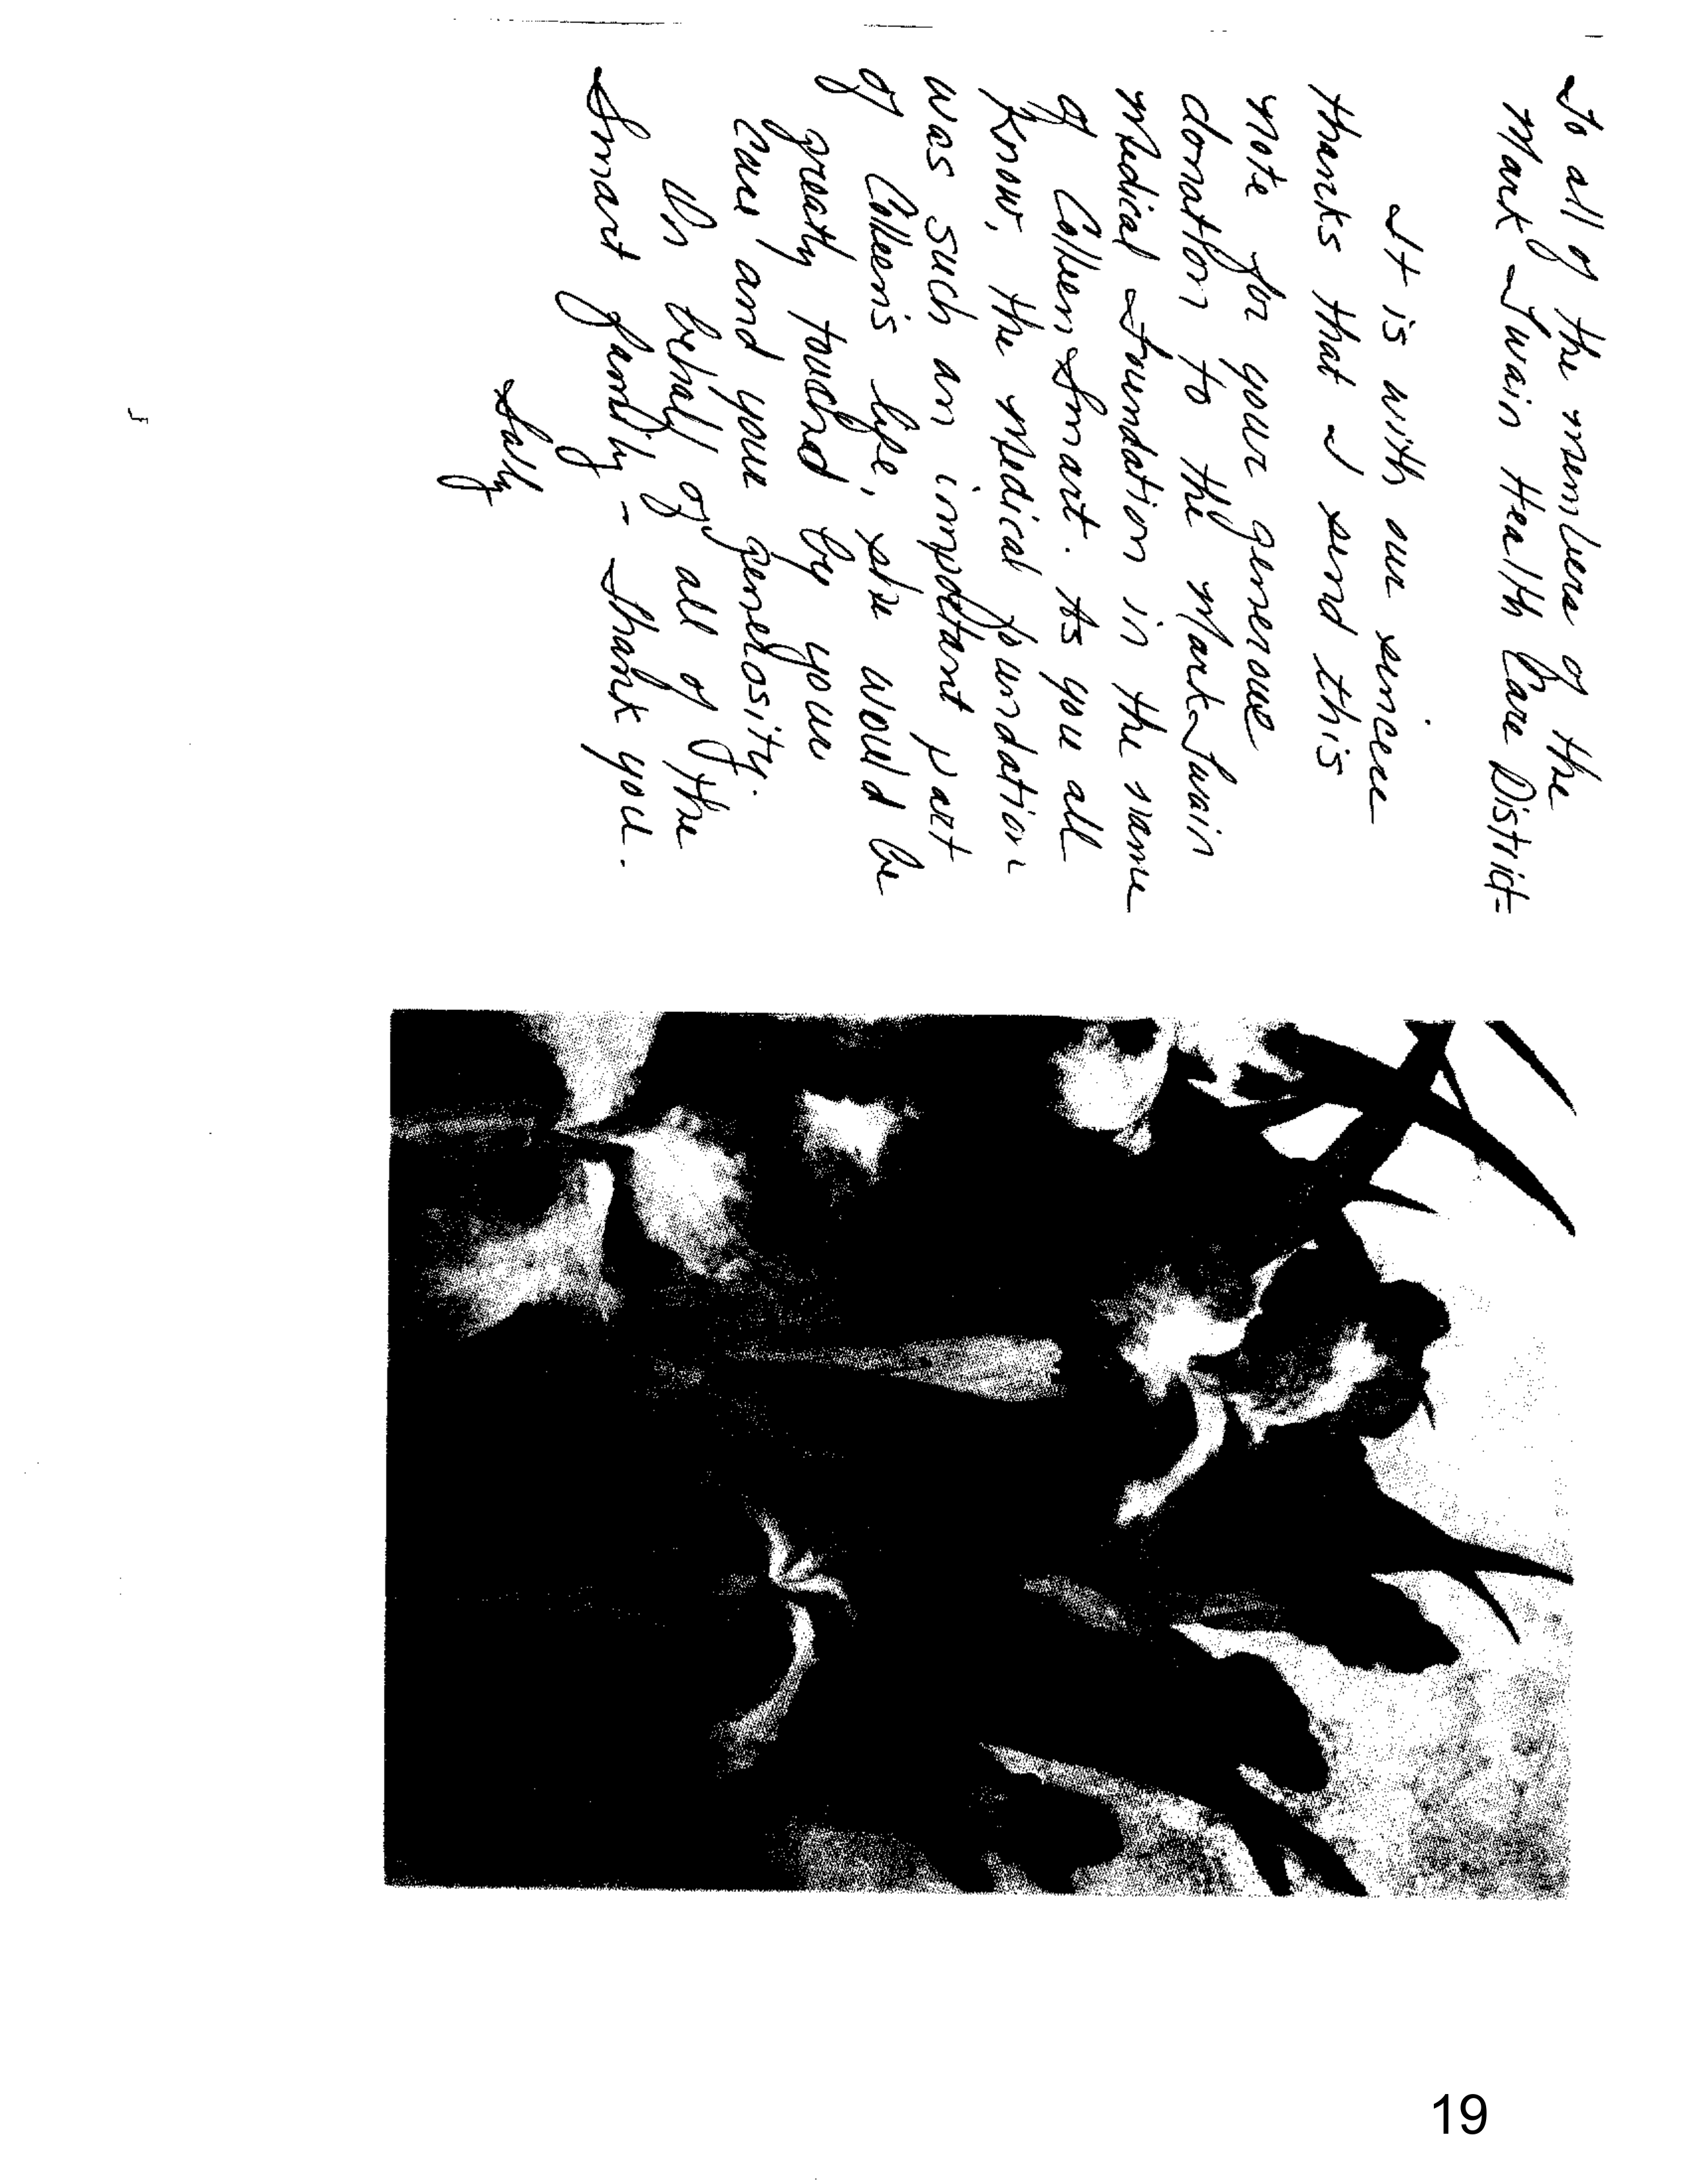 To all of the members of the
Mark Twain Health Care District-
It is with our sincere
thanks that I send this
note for your generous
donation to the Mark Twain
Medical Foundation in the name
of Colleen Smart. As you all
know, the medical foundation
was such an important part
of Colleen's life, she would be
greatly touched by your
care and your generosity.
On behalf of all of the
Smart family - Thank you.
Sally
19